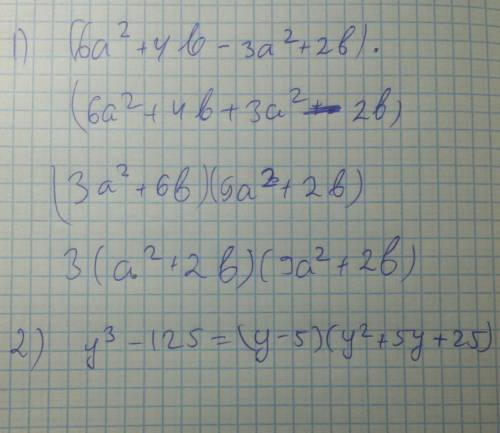 1) (6a² + 4b - 3a² + 2b) ·
(6a² + 4b + 3a² - 2b)
(3a² + 6b)(9a² + 2b)
3(a² + 2b)(9a² + 2b)
2) y³ - 125 = (y - 5)(y² + 5y + 25)